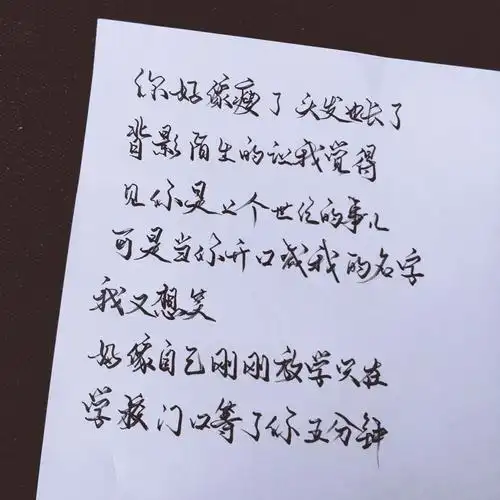 你好像瘦了 头发也长了
背影陌生的让我觉得
见你是上个世纪的事儿
可是当你开口喊我的名字
我又想笑
好像自己刚刚放学只在
学校门口等了你五分钟